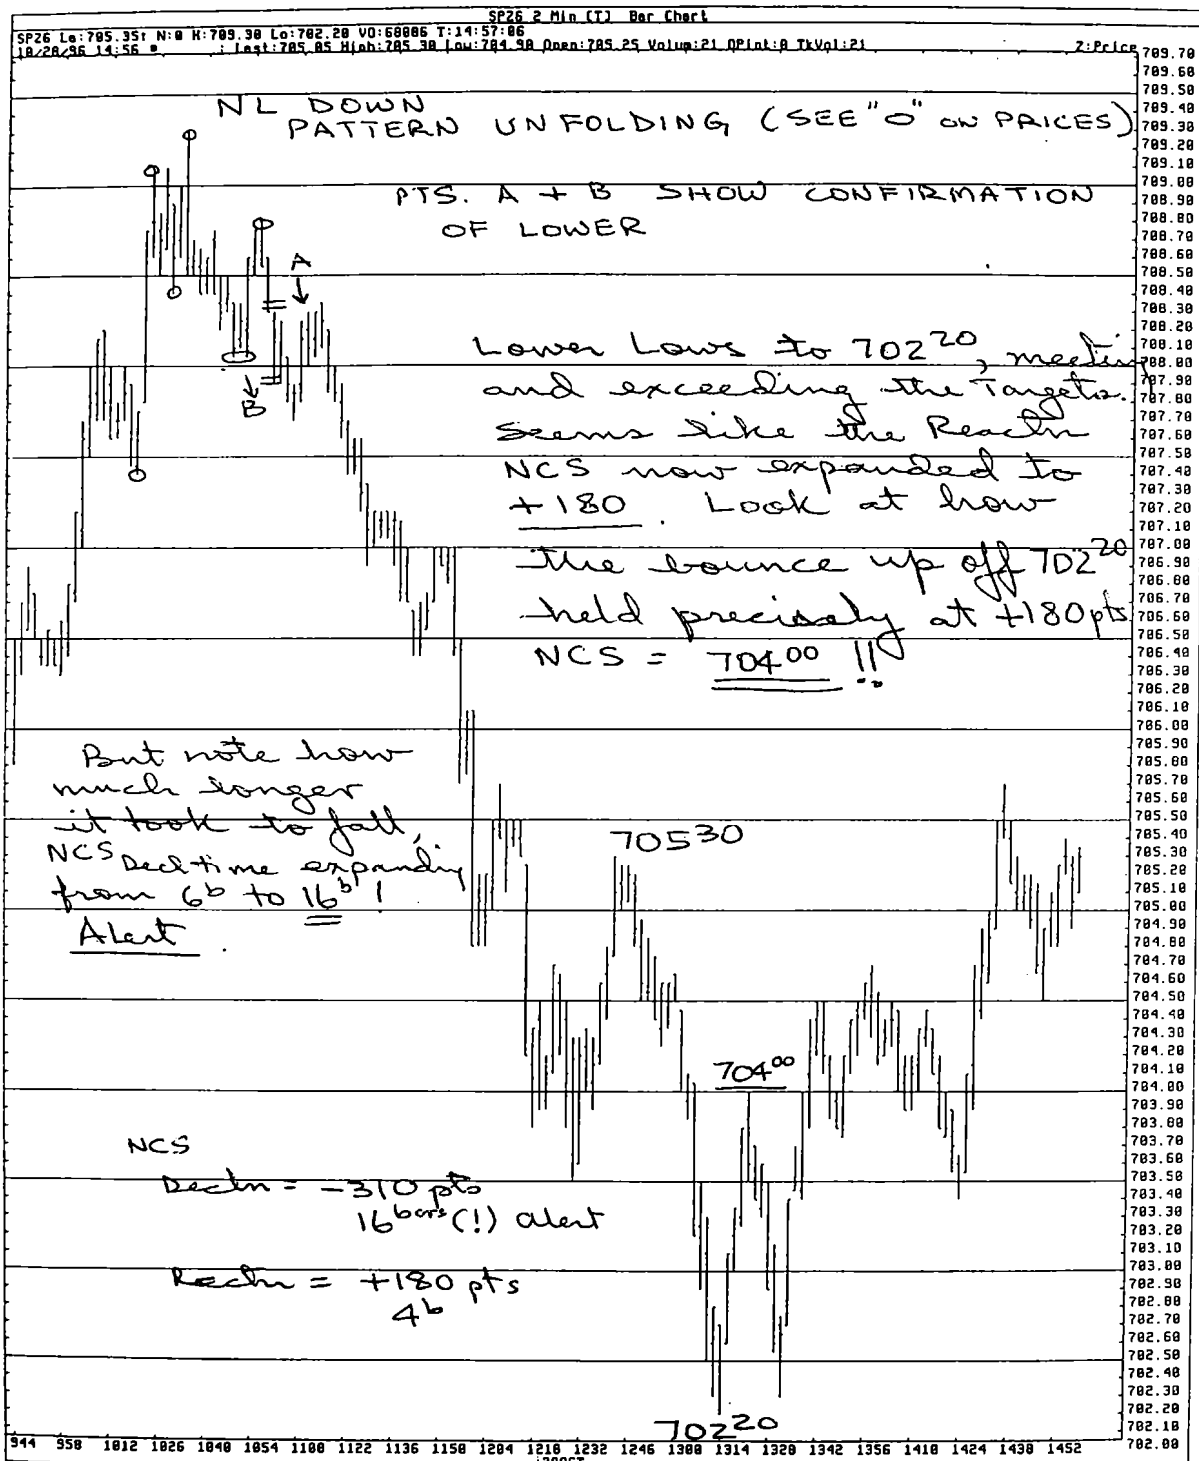 SPZ6 2 Min [T] Bar Chart
SPZ6 La:705.35↑ N:0 H:709.30 Lo:702.20 VO:68086 T:14:57:06
10/28/96 14:56 Last:705.05 High:705.30 Low:704.90 Open:705.25 Volum:21 OPInt:0 TkVol:21 2:Price
NL DOWN
PATTERN UNFOLDING (SEE "O" ON PRICES)
PTS. A + B SHOW CONFIRMATION
OF LOWER
A
B
Lower Lows to 702 20, meeting
and exceeding the Targets.
Seems like the Reactn
NCS now expanded to
+180. Look at how
the bounce up off 702 20
held precisely at +180 pts
NCS = 704 00 !!
But note how
much longer
it took to fall,
NCS Decl time expanding
from 6 b to 16 b !
Alert.
705 30
704 00
NCS
Decln = -310 pts
16 bars (!) alert
Reactn = +180 pts
4 b
702 20
709.70
709.60
709.50
709.40
709.30
709.20
709.10
709.00
708.90
708.80
708.70
708.60
708.50
708.40
708.30
708.20
708.10
708.00
707.90
707.80
707.70
707.60
707.50
707.40
707.30
707.20
707.10
707.00
706.90
706.80
706.70
706.60
706.50
706.40
706.30
706.20
706.10
706.00
705.90
705.80
705.70
705.60
705.50
705.40
705.30
705.20
705.10
705.00
704.90
704.80
704.70
704.60
704.50
704.40
704.30
704.20
704.10
704.00
703.90
703.80
703.70
703.60
703.50
703.40
703.30
703.20
703.10
703.00
702.90
702.80
702.70
702.60
702.50
702.40
702.30
702.20
702.10
702.00
944 958 1012 1026 1040 1054 1108 1122 1136 1150 1204 1218 1232 1246 1300 1314 1328 1342 1356 1410 1424 1438 1452